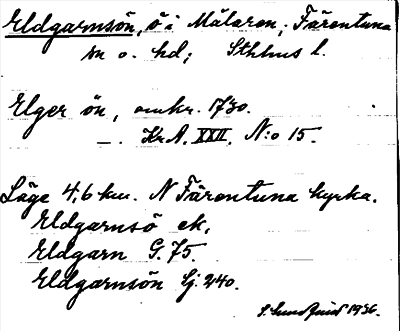 Eldgarnsön, ö i Mälaren, Färentuna
sn o. hd; Sthlms l.
Elger ön, omkr. 1730.
— . Kr.A. XXII. N:o 15.
Läge 4,6 km. N Färentuna kyrka.
Eldgarnsö ek,
Eldgarn G. 75.
Eldgarnsön Lj. 240.
S. Lundqvist 1936.